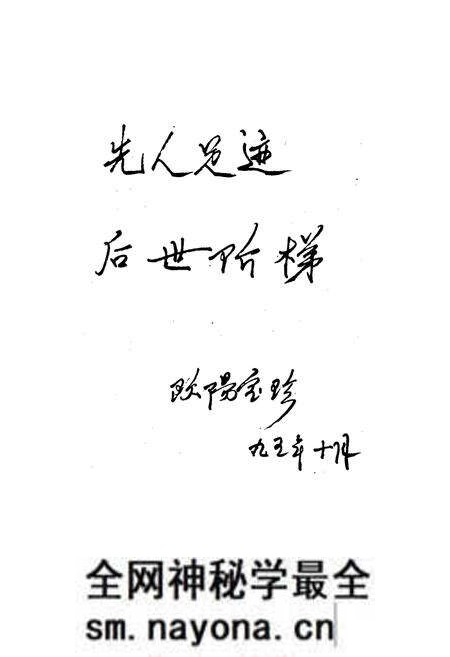 先人足迹
后世阶梯
欧阳宝珍
九五年十月
全网神秘学最全
sm.nayona.cn